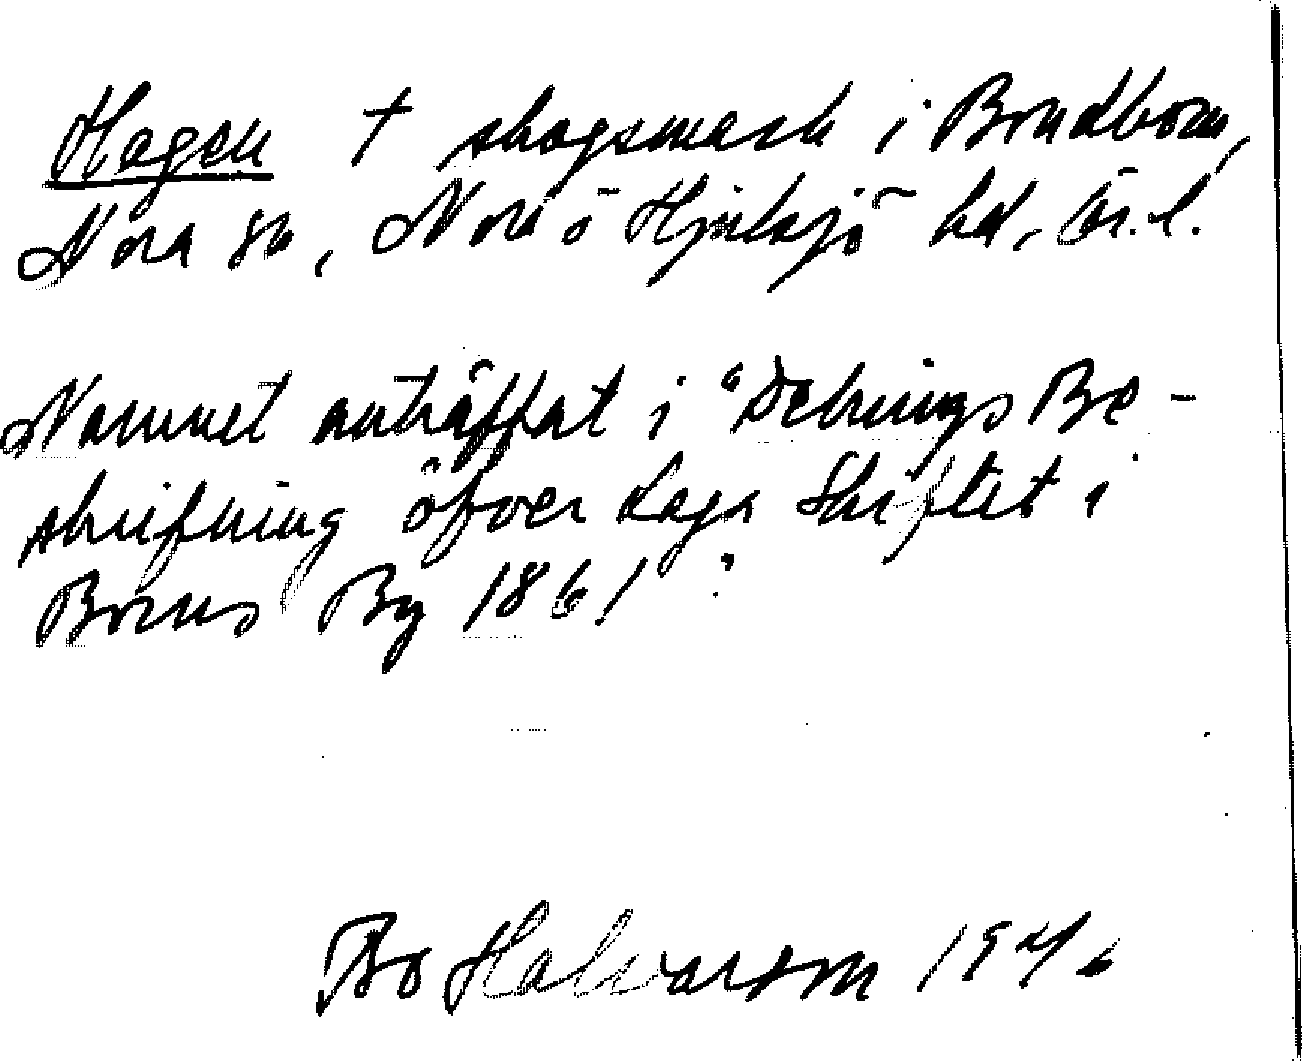 Hagen † skogsmark i Brudborn,
Nora sn, Nora o Hjulsjö hd, Ör.l.
Namnet anträffat i "Delnings Be-
skrifning öfver Laga Skiftet i
Borns By 1861".
Bo Halvarson 1946